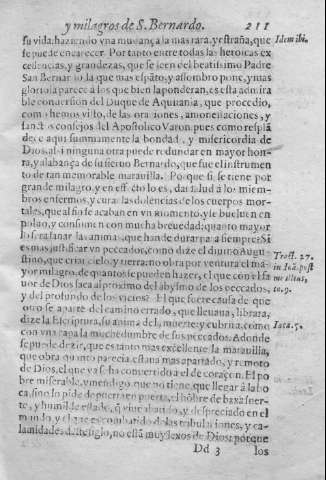 y milagros de S. Bernardo. 211
su vida: haziendo vna mudança la mas rara, y estraña, que Idem ibi.
se puede encarecer. Por tanto entre todas las heroicas ex
celencias, y grandezas, que se leen del beatissimo Padre
San Bernardo, la que mas espãto, y assombro pone, y mas
gloria a parece à los que bien la ponderan, es esta admira
ble conuersion del Duque de Aquitania, que procedio,
como hemos visto, de las oraciones, amonestaciones, y
sanctos consejos del Apostolico Varon: pues como resplã
dece aqui summamente la bondad, y misericordia de
Dios, assi ninguna otra puede redundar en mayor hon
ra, y alabança de su sieruo Bernardo, que fue el instrumen
to de tan memorable marauilla. Por que si se tiene por
grande milagro, y en effecto lo es, dar salud à los miem
bros enfermos, y curar las dolencias de los cuerpos mor
tales, que al fin se acaban en vn momento, y se bueluen en
poluo, y consumen con mucha breuedad: quanto mayor
lo sera sanar las animas, que han de durar para siempre? Si
es mas justificar vn peccador, como dize el diuino Augu Tract. 27.
stino, que criar cielo, y tierra: no obra por ventura el ma in Ioã. post
yor milagro de quantos se pueden hazer, el que con el fa medium,
uor de Dios saca al proximo del abysmo de los peccados, to. 9.
y del profundo de los vicios? El que fuere causa de que
otro se aparte del camino errado, que lleuaua, librara,
dize la Escriptura, su anima de la muerte: y cubrira, como Iaco. 5.
con vna capa la muchedumbre de sus peccados. Adonde
se puede dezir, que es tanto mas excellente la marauilla,
que obra quanto parecia estaua mas apartado, y remoto
de Dios, el que ya se ha conuertido a el de coraçon. El po
bre miserable, y mendigo, que no tiene que llegar à la bo
ca, sino lo pide de puerta en puerta, el hõbre de baxa suer
te, y humilde estado, q̃ viue abatido, y despreciado en el
mundo, y el que es combatido de las tribulaciones, y ca-
lamidades deste siglo, no està muy lexos de Dios: porque
Dd 3 los